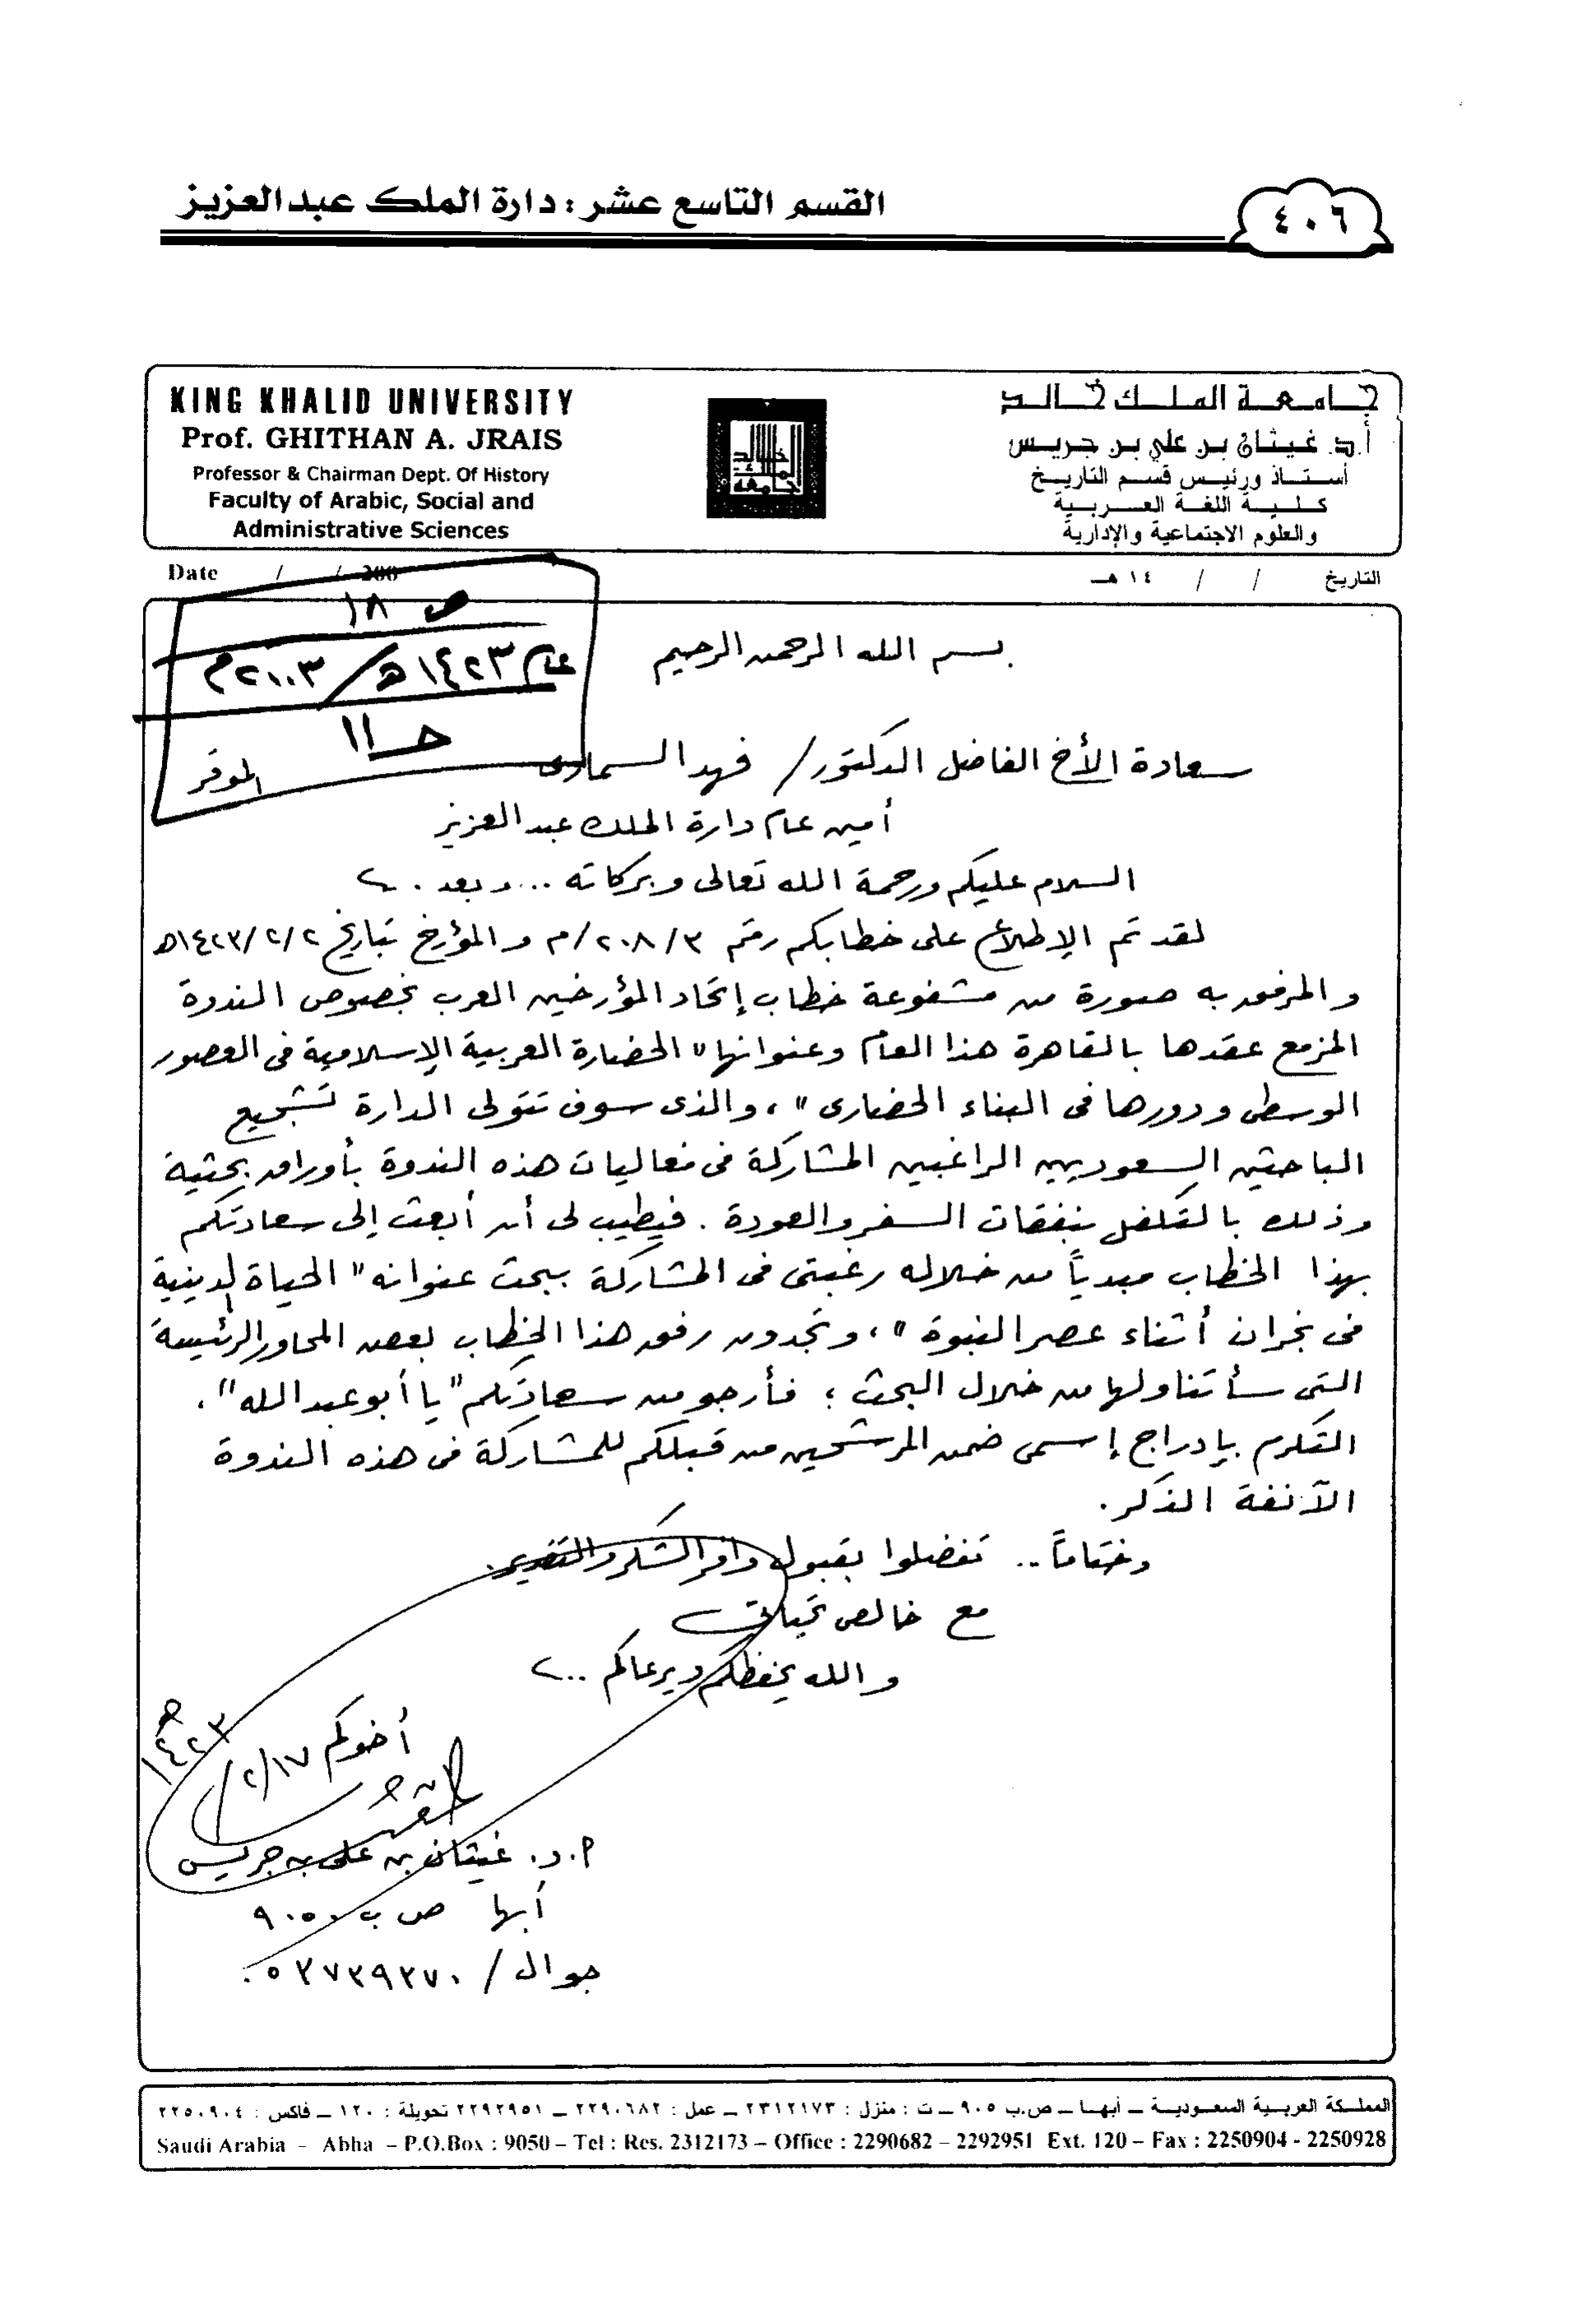 القسم التاسع عشر : دارة الملك عبدالعزيز
٤٠٦
KING KHALID UNIVERSITY
Prof. GHITHAN A. JRAIS
Professor & Chairman Dept. Of History
Faculty of Arabic, Social and
Administrative Sciences
جامعة الملك خالد
جامعة الملك خالد
أ.د. غيثان بن علي بن جريس
أستاذ ورئيس قسم التاريخ
كلية اللغة العربية
والعلوم الاجتماعية والإدارية
Date / / 200
التاريخ / / ١٤ هـ
ص ١٨
عام ١٤٢٣هـ/٢٠٠٣م
حـ١١
بسم الله الرحمن الرحيم
سعادة الأخ الفاضل الدكتور/ فهد السمارى الموقر
أمين عام دارة الملك عبدالعزيز
السلام عليكم ورحمة الله تعالى وبركاته ... وبعد .
لقد تم الإطلاع على خطابكم رقم ٢٠٨/٣/م والمؤرخ بتاريخ ١٤٢٣/٢/٢هـ
والمرفق به صورة من مشفوعة خطاب إتحاد المؤرخين العرب بخصوص الندوة
المزمع عقدها بالقاهرة هذا العام وعنوانها " الحضارة العربية الإسلامية فى العصور
الوسطى ودورها فى البناء الحضارى "، والذى سوف تتولى الدارة تشجيع
الباحثين السعوديين الراغبين المشاركة فى فعاليات هذه الندوة بأوراق بحثية
وذلك بالتكلفل بنفقات السفر والعودة . فيطيب لى أن أبعث إلى سعادتكم
بهذا الخطاب مبدياً من خلاله رغبتى فى المشاركة ببحث عنوانه " الحياة الدينية
فى نجران أثناء عصر النبوة "، وتجدون رفق هذا الخطاب بعض المحاور الرئيسة
التى سأتناولها من خلال البحث ؛ فأرجو من سعادتكم "يا أبو عبدالله"،
التكرم بإدراج إسمى ضمن المرشحين من قبلكم للمشاركة فى هذه الندوة
الآنفة الذكر.
وختاماً .. تفضلوا بقبول وافر الشكر والتقدير.
مع خالص تحياتى
والله يحفظكم ويرعاكم ...
أخوكم ٢/١٧/ ١٤٢٣هـ
أ.د. غيثان بن على بن جريس
أبها ص ب ٩٠٥٠
جوال / ٠٥٣٧٣٩٣٧٠
المملكة العربية السعودية – أبها – ص.ب ٩٠٥ – ت : منزل : ٢٣١٢١٧٣ – عمل : ٢٢٩٠٦٨٢ – ٢٢٩٢٩٥١ تحويلة : ١٢٠ – فاكس : ٢٢٥٠٩٠٤
Saudi Arabia – Abha – P.O.Box : 9050 – Tel : Res. 2312173 – Office : 2290682 – 2292951 Ext. 120 – Fax : 2250904 - 2250928